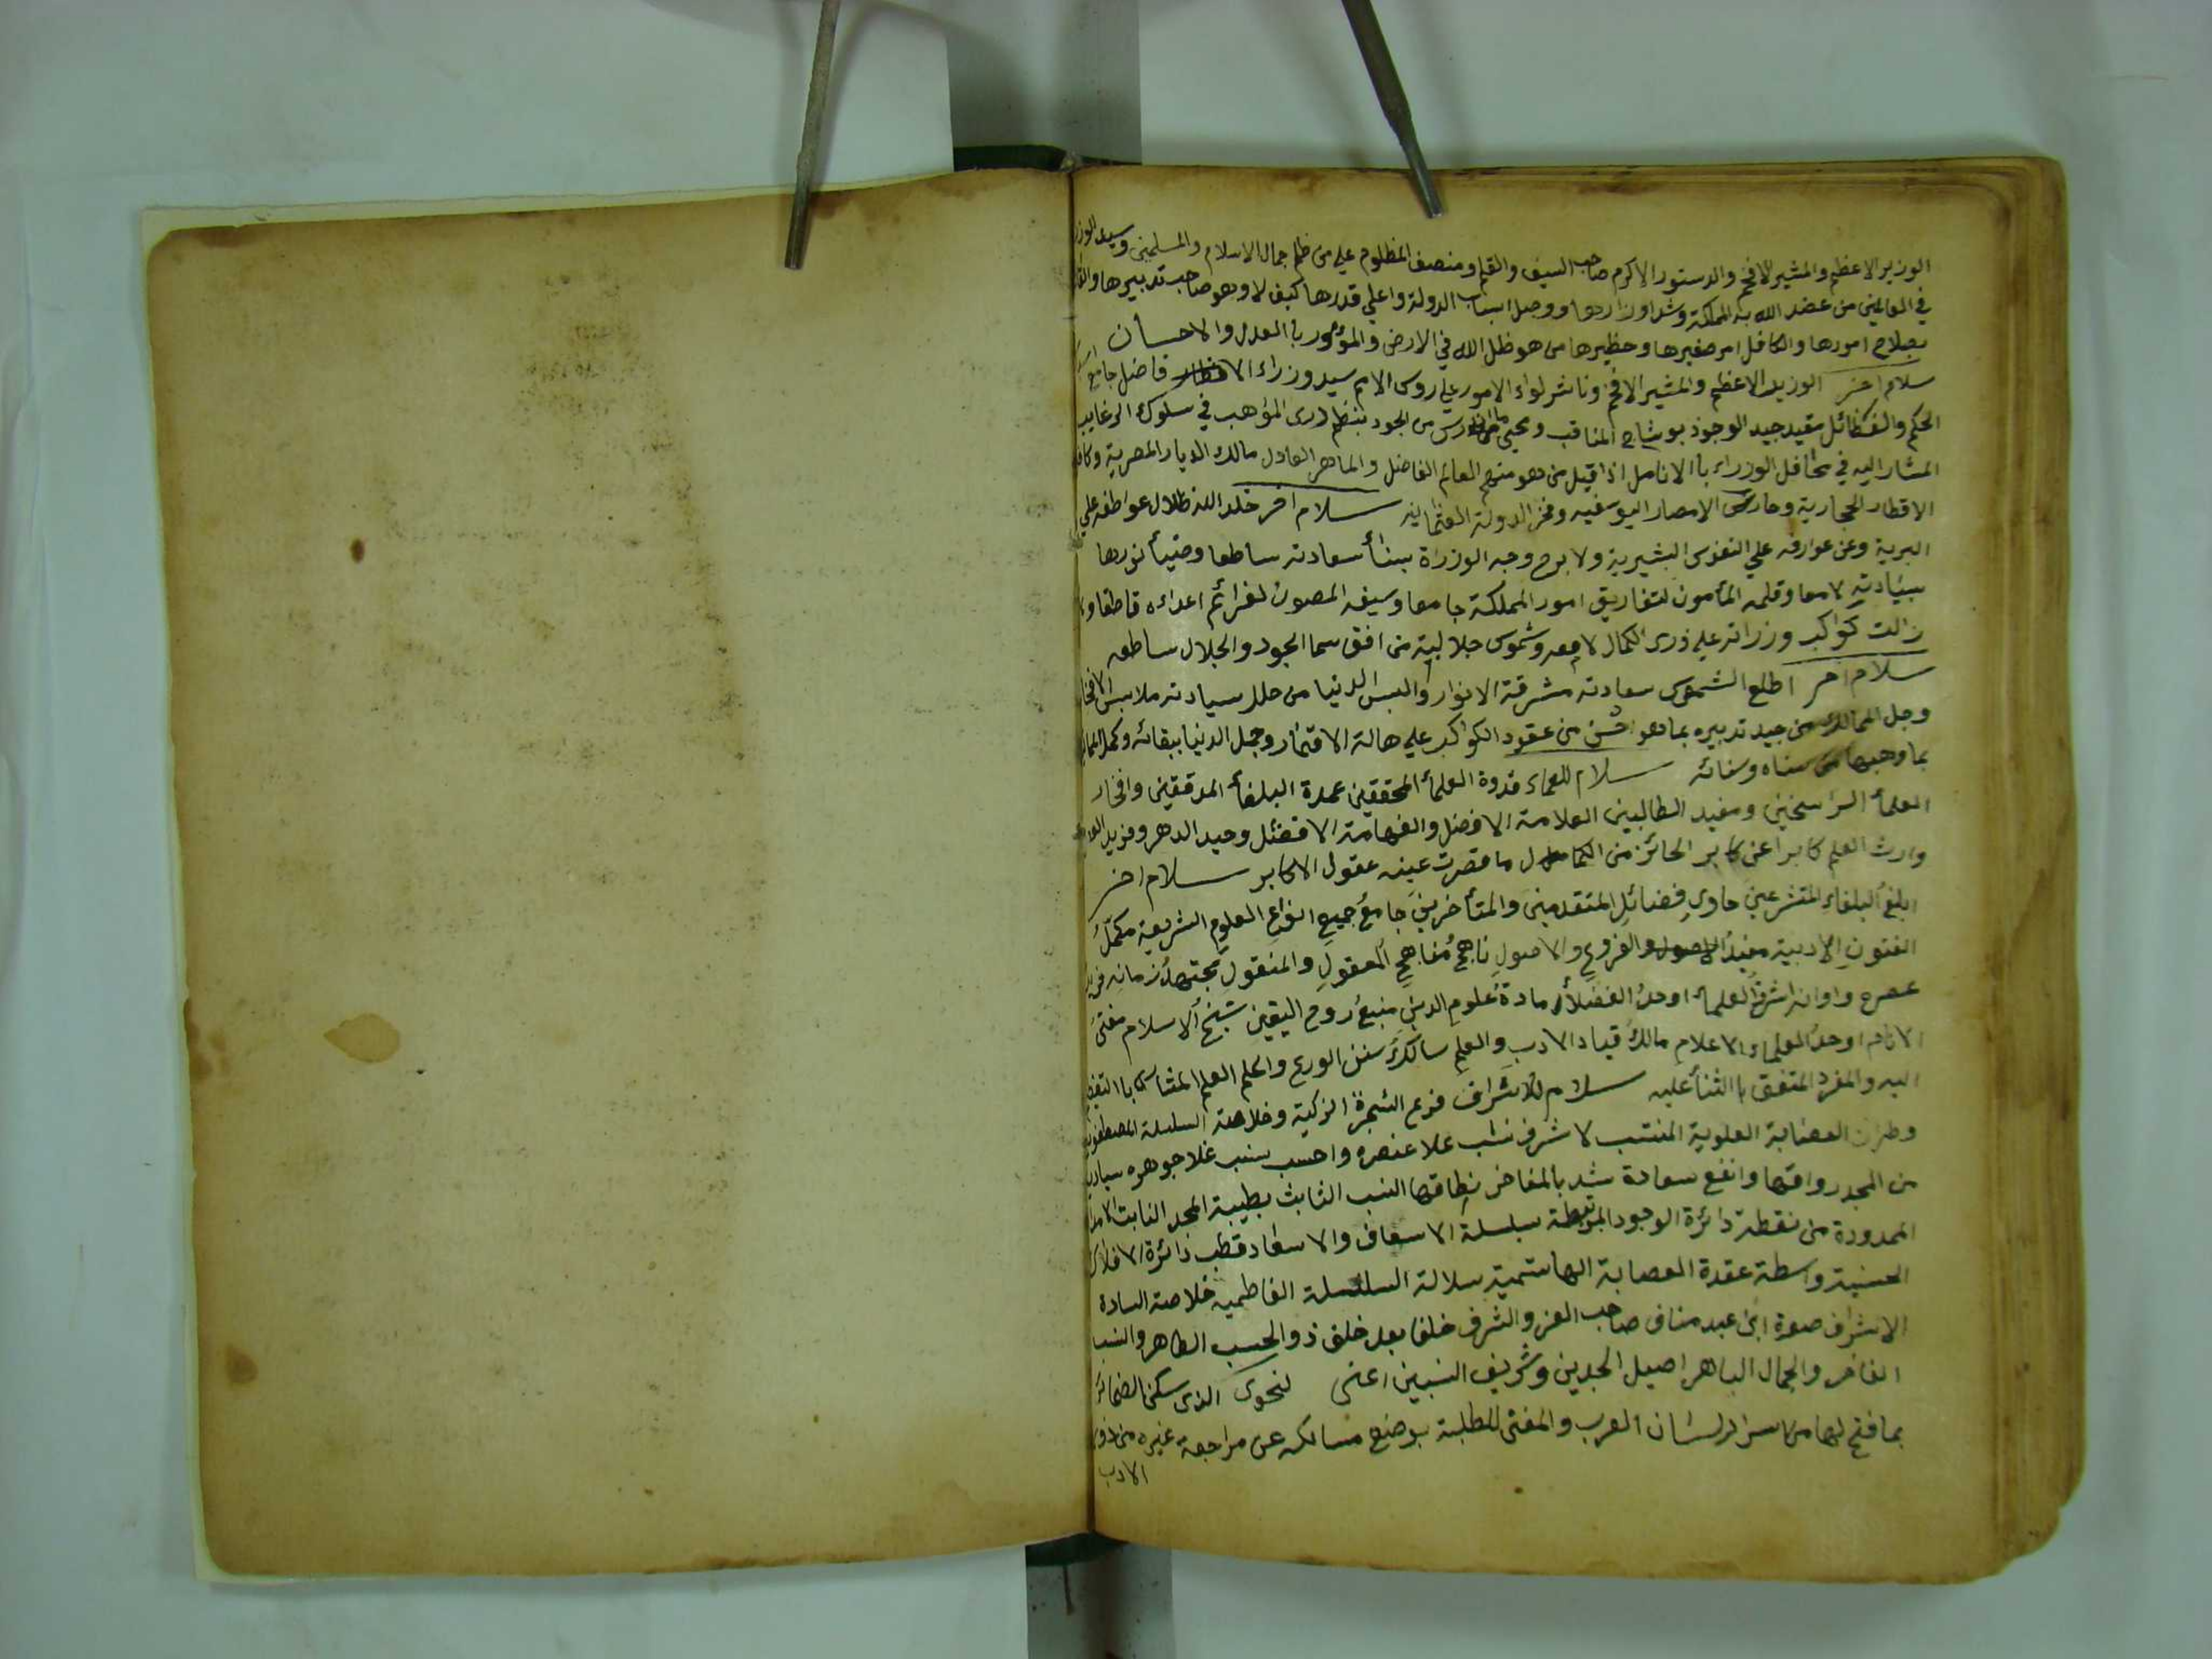 الوزير الاعظم والمشير الافخم والدستور الاكرم صاحب السيف والقلم ومنصف المظلوم علي من ظلم جمال الاسلام والمسلمين وسيد الوزر
في العالمين من عضد الله به المملكة وشد اوزارها ووصل اسباب الدولة واعلي قدرها كيف لا وهو صاحب تدبيرها
بصلاح امورها والكافل امر صغيرها وخطيرها من هو ظل الله في الارض والمؤمور باالعدل والاحسان
سلام اخر الوزير الاعظم والمشير الافخم وناشر لواء الامور علي روس الامم سيد وزراء الاقطار فاضل جامع
الحكم والفضائل مقيد جيد الوجود بوشاح المناقب ومحيي ما اندرس من الجود بنظم درى المؤاهب في سلوك الرغايب
المشار اليه في محافل الوزراء باالانامل اذا قيل من هو منهم العالم الفاضل والماهر العادل مالك الديار المصرية وكافل
الاقطار الحجازية وحارس الامصار اليوسفيه وفخر الدولة العثمانيه سلام اخر خلد الله ظلال عواطفه علي
البرية وعن عوارفه علي النفوس البشيرية ولا برح وجه الوزراة بسنأ سعادته ساطعا وضيأ نورها
بسيادته لامعا وقلمه المأمون لتفاريق امور المملكة جامعا وسيفه المصون لغرائم اعداءه قاطعا ولا
زالت كواكب وزراته علي ذرى الكمال لامعه وشموس جلالبية من افق سما الجود والجلال ساطعه
سلام اخر اطلع الشموس سعادته مشرقة الانوار والبس الدنيا من حلل سيادته ملابس الافخار
وجل الممالك من جيد تدبيره بما هو احسن من عقود الكواكب علي هالة الاقمار وجمل الدنيا ببقائه وكمل
بما وهبها من سناه وسنائه سلام للعماء قدوة العلمأ المحققين عمدة البلغأ المدققين وافخار
العلمأ الراسخين ومفيد الطالبين العلامة الافضل والفهامة الافضئل وحيد الدهر وفريد
وارث العلم كابرا عن كابر الحائز من الكمال ما قصرت عينه عقول الاكابر سلام اخر
ابلغ البلغاء المتشرعين حاوي فضائل المتقدمين والمتأخرين جامع جميع انواع العلوم الشريعة مكمل
الفنون الادبية مفيد الاصول والفروع والاصول ناهج مناهج المعقول والمنقول مجتهد زمانه فريد
عصره واوانه اشرف العلماء اوحد الفضلأ مادة علوم الدين منبع روح اليقين شيخ الاسلام مفتى
الانام اوحد العلماء الاعلام مالك قياد الادب والعلم سالك سنن الورع والحلم العلم المشار
اليه والمفرد المتفق باالثنأ عليه سلام للاشراف فرع الشجرة الزكية وخلاصة السلسلة المصطفوية
وطراز العصابة العلوية المنتسب لاشرف نسب علا عنصره واحسب سنب غلا جوهره سيادة
من المجد رواقها وانفع سعادة شد بالمفاخر نطاقها النسب الثابث بطيبة المجد النابت
الممدودة من نقطة دائرة الوجود المرتبطة بسلسلة الاسعاف والاسعاد قطب دائرة الافلاك
الحسنية واسطة عقدة العصابة الهاشمية سلالة السلسلة الفاطميه خلاصة السادة
الاشراف صفوة ابن عبد مناف صاحب العز والشرف خلفا بعد خلف ذو الحسب الطاهر والنسب
الفاخر والجمال الباهر اصيل الجدين وشريف النسبين اعنى لنحوى الذى سكن الضمائر
بما فتح لها من اسرار لسان العرب والمغنى للطلبة بوضع مسالكه عن مراجعة غيره من ذوى
الادب